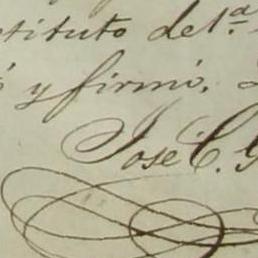 stituto de 1.ª
y firmó.
José C. G